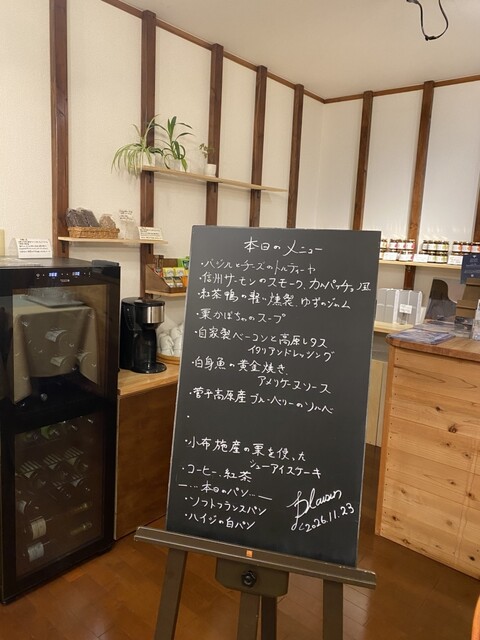 本日のメニュー
・バジルとチーズのトルティーヤ
・信州サーモンのスモーク、カルパッチョ風
・和茶鴨の軽い燻製、ゆずのジャム
・栗かぼちゃのスープ
・自家製ベーコンと高原レタス
イタリアンドレッシング
・白身魚の黄金焼き、
アメリケーヌソース
・菅平高原産ブルーベリーのソルベ
・
・小布施産の栗を使った
シューアイスケーキ
・コーヒー、紅茶
―…本日のパン…―
・ソフトフランスパン
・ハイジの白パン
2025.11.23